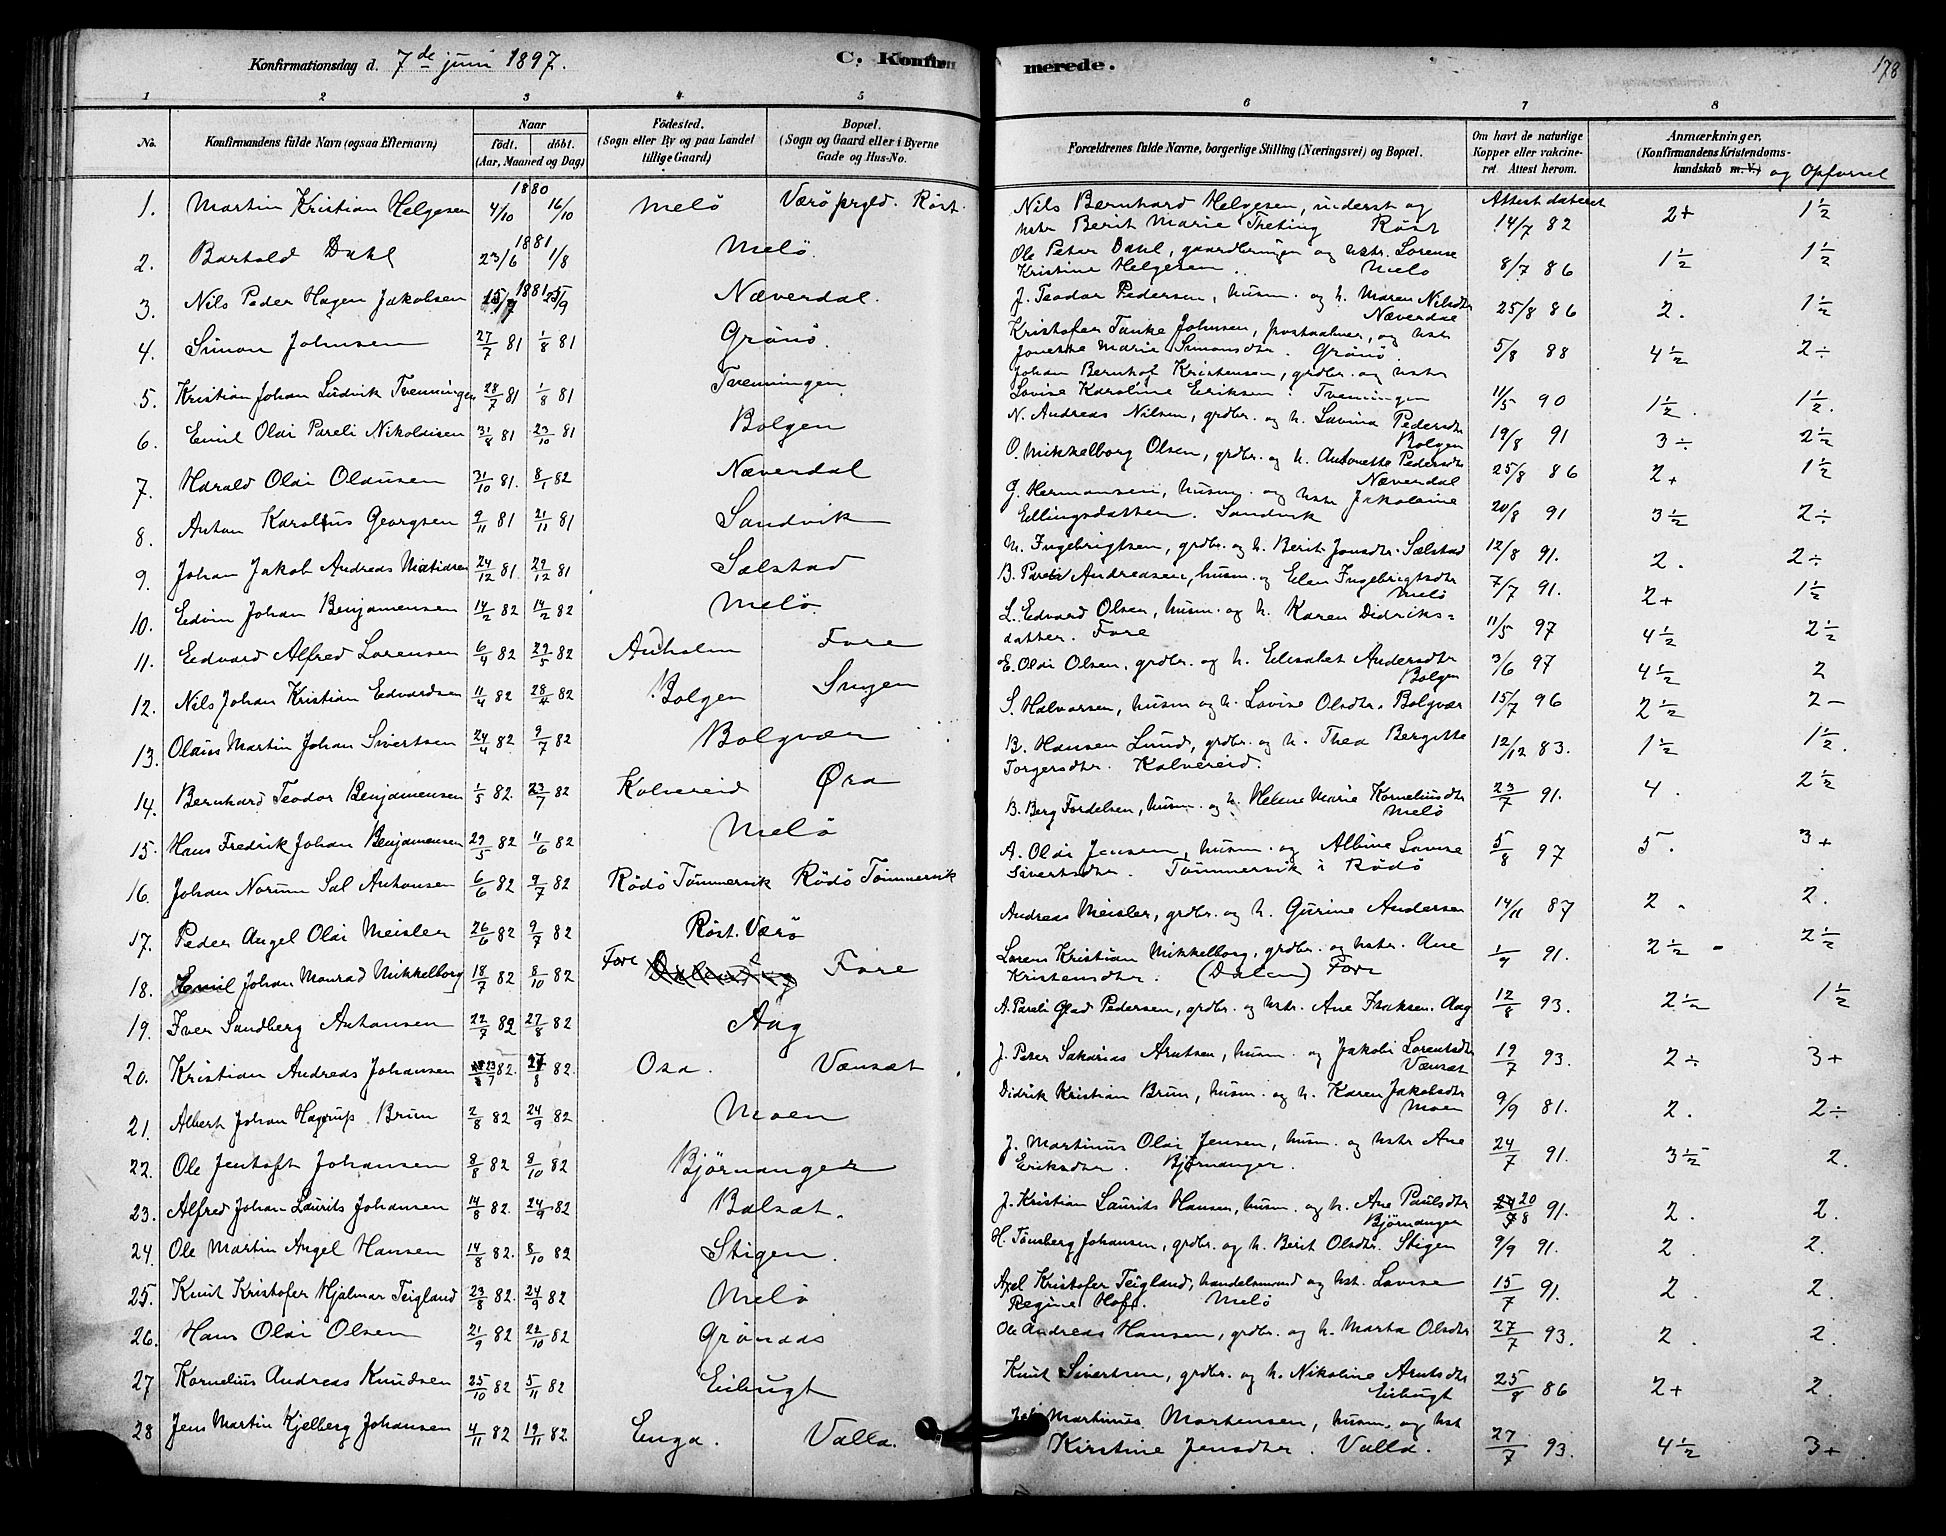 Konfirmationsdag d. 7de juni 1897.
C. Konfirmerede.
178
1 2 3 4 5 6 7 8
No.
Konfirmandens fulde Navn (ogsaa Efternavn)
Naar
født. døbt.
(Aar, Maaned og Dag)
Fødested.
(Sogn eller By og paa Landet
tillige Gaard)
Bopæl.
(Sogn og Gaard eller i Byerne
Gade og Hus-No.
Forældrenes fulde Navne, borgerlige Stilling (Næringsvei) og Bopæl.
Om havt de naturlige
Kopper eller vakcine-
ret. Attest herom.
Anmærkninger.
(Konfirmandens Kristendoms-
kundskab m. V.) og Opførsel
1. Martin Kristian Helgesen 1880 4/10 16/10 Melö Værö prgld. Röst. Nils Bernhard Helgesen, inderst og
hstr Berit Marie Theting Röst Attest dateret 14/7 82 2+ 1½
2. Bartold Dahl 1881 23/6 1/8 Melö. Ole Peter Dahl, gaardbruger og hstr. Lorense
Kristine Helgesen. Melö 8/7 86 1½ 1½
3. Nils Peder Hagen Jakobsen 1881 15/7 25/9 Næverdal. J. Teodor Pedersen, husm. og h. Maren Nilsdtr
Næverdal 25/8 86 2. 1½
4. Simon Johnsen 27/7 81 1/8 81 Grönö. Kristofer Tanke Johnsen, postaabner, og hstr
Jonetta Marie Simonsdtr. Grönö. 5/8 88 4½ 2÷
5. Kristian Johan Ludvik Tvenningen 28/7 81 1/8 81 Tvenningen Johan Bernhof Kristensen, grdbr. og hstr
Lovise Karoline Eriksen. Tvenningen 11/5 90 1½. 1½.
6. Emil Oldi Pareli Nikolaisen 31/8 81 23/10 81 Bolgen N. Andreas Nilsen, grdbr. og h. Lavina Pedersdtr
Bolgen 19/8 91 3÷ 2½
7. Harald Oldi Oldusen 31/10 81. 8/1 82 Næverdal O. Mikkelborg Olsen, grdbr. og h. Antonette Pedersdtr
Næverdal 25/8 86 2+ 1½
8. Anton Karolius Georgsen 9/11 81 21/11 81 Sandvik G. Hermansen, husm. og hstr Jakobine
Ellingsdatter. Sandvik 20/8 91 3½ 2÷
9. Johan Jakob Andreas Matidsen 24/12 81. 29/12 81 Sælstad M. Ingebrigtsen, grdbr. og h. Berit Jonsdtr. Sælstad 12/8 91. 2. 2÷
10. Edvin Johan Benjamensen 14/2 82 14/2 82 Melö. B. Pareli Andreasen, husm. og Elen Ingebrigtsdtr
Melö 7/7 91. 2+ 1½
11. Edvard Alfred Lorensen 6/4 82 29/5 82 Anholm Fore L. Edvard Olsen, husm. og h. Karen Didriks=
datter. Fore 11/5 97 4½ 2½
12. Nils Johan Kristian Edvardsen 11/4 82 28/4 82 Bolgen E. Oldi Olsen, grdbr. og h. Elisabet Andersdtr
Bolgen 3/6 97 4½ 2
13. Olaus Martin Johan Sivertsen 24/4 82 9/7 82 Bolgvær S. Halvorsen, husm og h. Lovise Olsdtr. Bolgvær 15/7 96 2½ 2-
14. Bernhard Teodor Benjamensen 1/5 82. 23/7 82 Kalvereid Øra B. Hansen Lund, grdbr. og h. Thea Bergitte
Torgersdtr. Kalvereid. 12/12 83. 1½ 1½.
15. Hans Fredrik Johan Benjamensen 29/5 82 11/6 82 Melö B. Berg Fordelsen, husm. og h. Helene Marie Korneliusdtr
Melö 23/7 91. 4. 2½
16. Johan Norum Sal Antonsen 6/6 82 9/7 82 Rödö Tömmervik Rödö Tömmervik A. Oldi Jensen, husm. og Albine Lovise
Sivertsdtr. Tömmervik i Rödö 5/8 97 5. 3+
17. Peder Angel Oldi Meisler 26/6 82 9/7 82 Röst. Værö Andreas Meisler, grdbr. og h. Gurine Andersen 14/11 87 2. 2.
18. Emil Johan Monrad Mikkelborg 18/7 82 8/10 82 Fore Fore Lorens Kristian Mikkelborg, grdbr. og hstr. Ane
Kristensdtr. (Dalen) Fore 1/9 91. 2½ 2½
19. Iver Sandberg Antonsen 22/7 82 27/8 82 Aag A. Pareli Glad Pedersen, grdbr. og hstr. Ane Isaksen. Aag 12/8 93. 2½ 1½
20. Kristian Andreas Johansen 23/7 82. 27/8 82. Osa. Vænsæt J. Peter Sakarias Arntsen, husm. og Jakobi Lorentsdtr
Vænsæt 19/7 93. 2÷ 3+
21. Albert Johan Hagerup Brun 2/8 82 24/9 82 Moen Didrik Kristian Brun, husm. og h. Karen Jakobsdtr
Moen 9/9 81. 2. 2÷
22. Ole Jentoft Johansen 8/8 82 8/10 82 Bjørnanger J. Martinus Oldi Jensen, husm. og hstr Ane
Eriksdtr. Bjørnanger. 24/7 91. 3½ 2.
23. Alfred Johan Laurits Johansen 14/8 82. 24/9 82 Balsæt. J. Kristian Laurits Hansen, husm. og h. Ane Paulsdtr
Bjørnanger 20/8 91. 2. 2.
24. Ole Martin Angel Hansen 14/8 82. 8/10 82 Stigen. H. Tönsberg Johansen, grdbr. og h. Berit Olsdtr. Stigen 9/9 91. 2. 2.
25. Knut Kristofer Hjalmar Teigland 23/8 82. 24/9 82 Melö Axel Kristofer Teigland, handelsmand og hst. Lovise
Regine Hoff. Melö 15/7 91. 2. 2.
26. Hans Oldi Olsen 21/9 82 22/10 82 Grönaas Ole Andreas Hansen, grdbr. og h. Marta Olsdtr 27/7 93. 2. 2.
27 Kornelius Andreas Knudsen 25/10 82 5/11 82 Eidbugt Knut Sivertsen, grdbr. og h. Nikoline Arntsdtr
Eidbugt 25/8 86 2+ 2.
28 Jens Martin Kjelberg Johansen 4/11 82 19/11 82. Enga. Valla. Joh. Martinus Mortensen, husm. og hst
Kirstine Jensdtr. Valla. 27/7 93. 4½ 3+